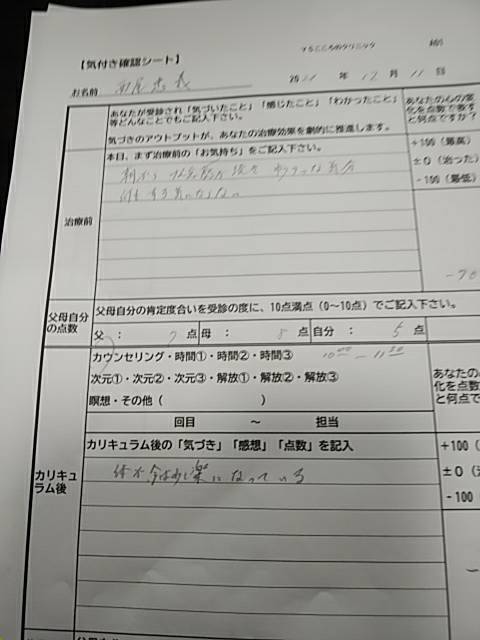 こころのクリニック
【気付き確認シート】
お名前 西尾忠義 年 12 月 11 日
あなたが受診され「気づいたこと」「感じたこと」「わかったこと」
等どんなことでもご記入下さい。
気づきのアウトプットが、あなたの治療効果を劇的に推進します。
あなたの心の変
化を点数で表す
と何点ですか?
治療前
本日、まず治療前の「お気持ち」をご記入下さい。
+100(最高)
±0(治った)
-100(最低)
朝から
父母自分
の点数
父母自分の肯定度合いを受診の度に、10点満点(0~10点)でご記入下さい。
父: 7 点 母: 8 点 自分: 5 点
カリキュ
ラム後
カウンセリング・時間①・時間②・時間③
次元①・次元②・次元③・解放①・解放②・解放③
瞑想・その他( )
回目 ~ 担当
あなたの
化を点数
と何点で
カリキュラム後の「気づき」「感想」「点数」を記入
+100(
±0(
-100(
体が今は少し楽になっている